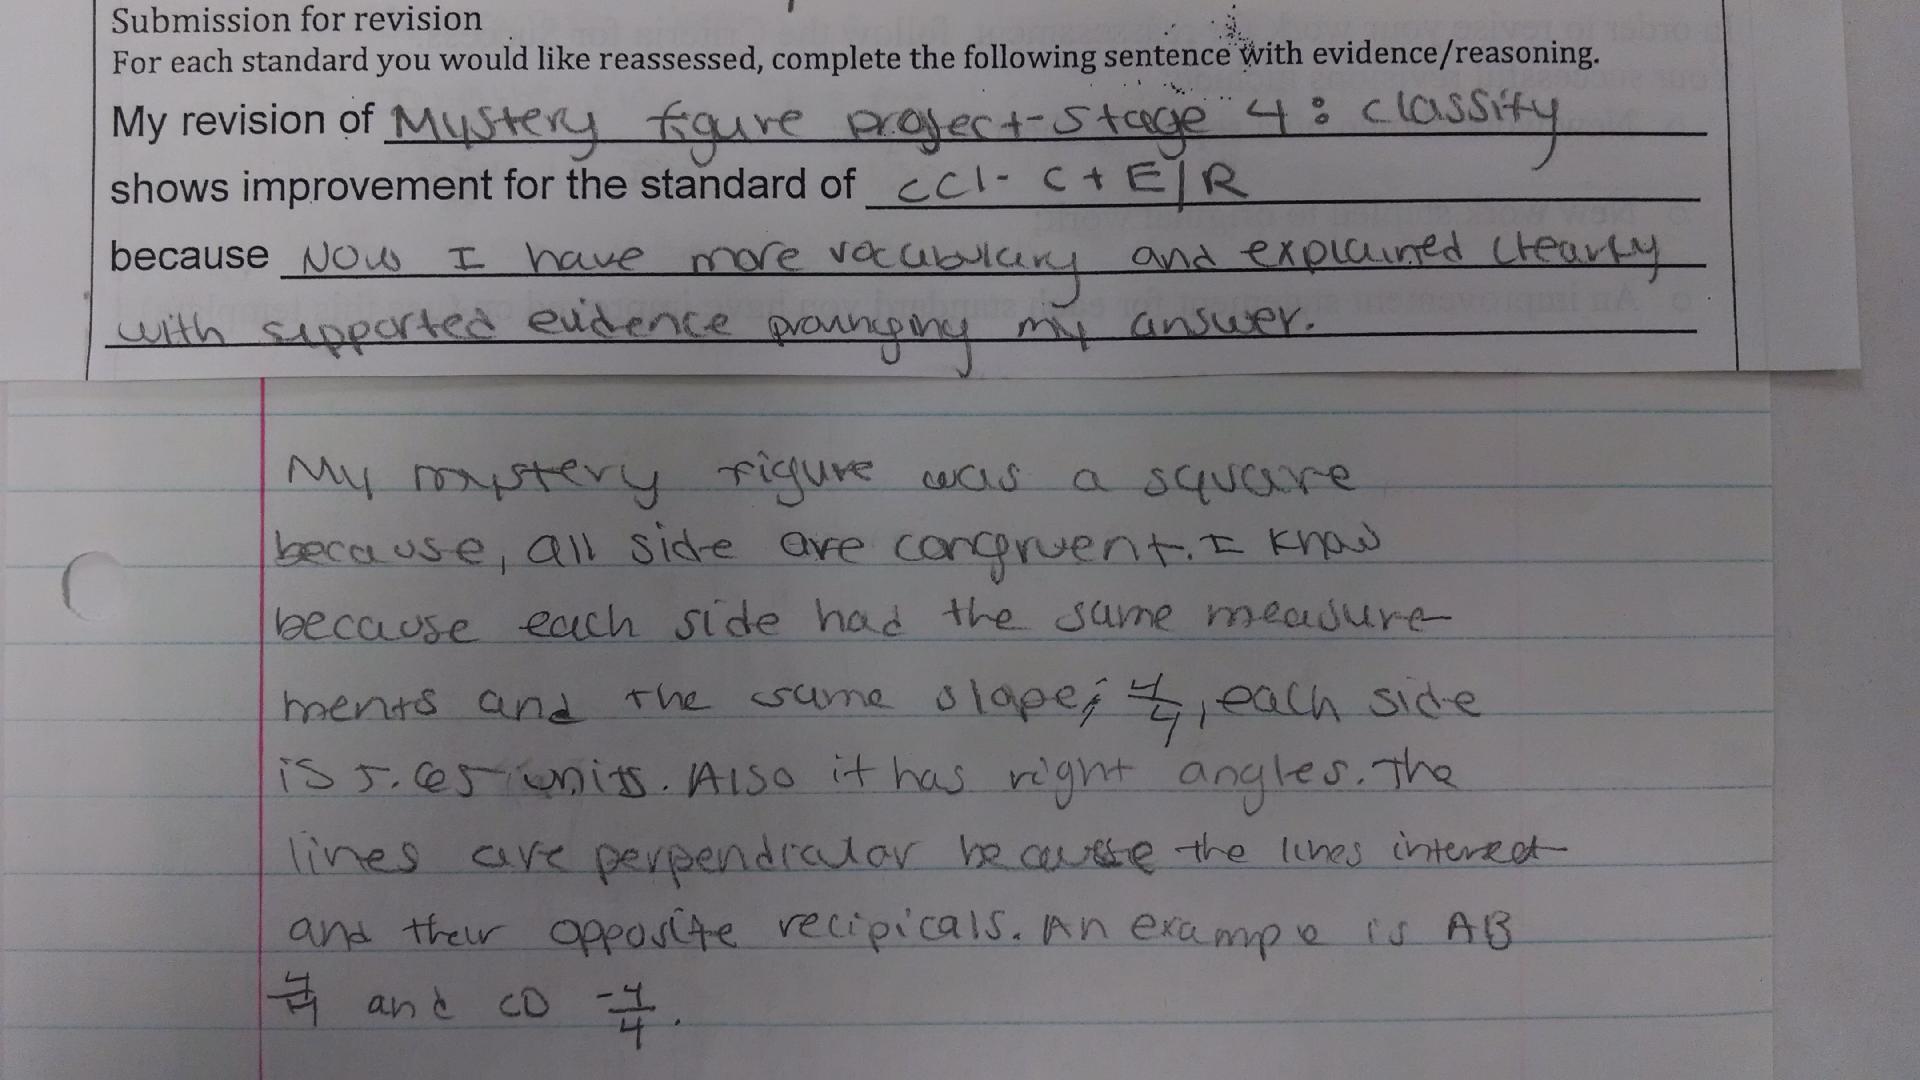 Submission for revision
For each standard you would like reassessed, complete the following sentence with evidence/reasoning.
My revision of Mystery figure project-stage 4: classify
shows improvement for the standard of CC1- C+E/R
because Now I have more vocabulary and explained clearly
with supported evidence my answer.
My mystery figure was a square
because, all side are congruent. I know
because each side had the same measure
ments and the same slope; 4/4, each side
is 5.65 units. Also it has right angles. The
lines are perpendicular because the lines interect
and their opposite recipicals. An example is AB
4/4 and CD -4/4.